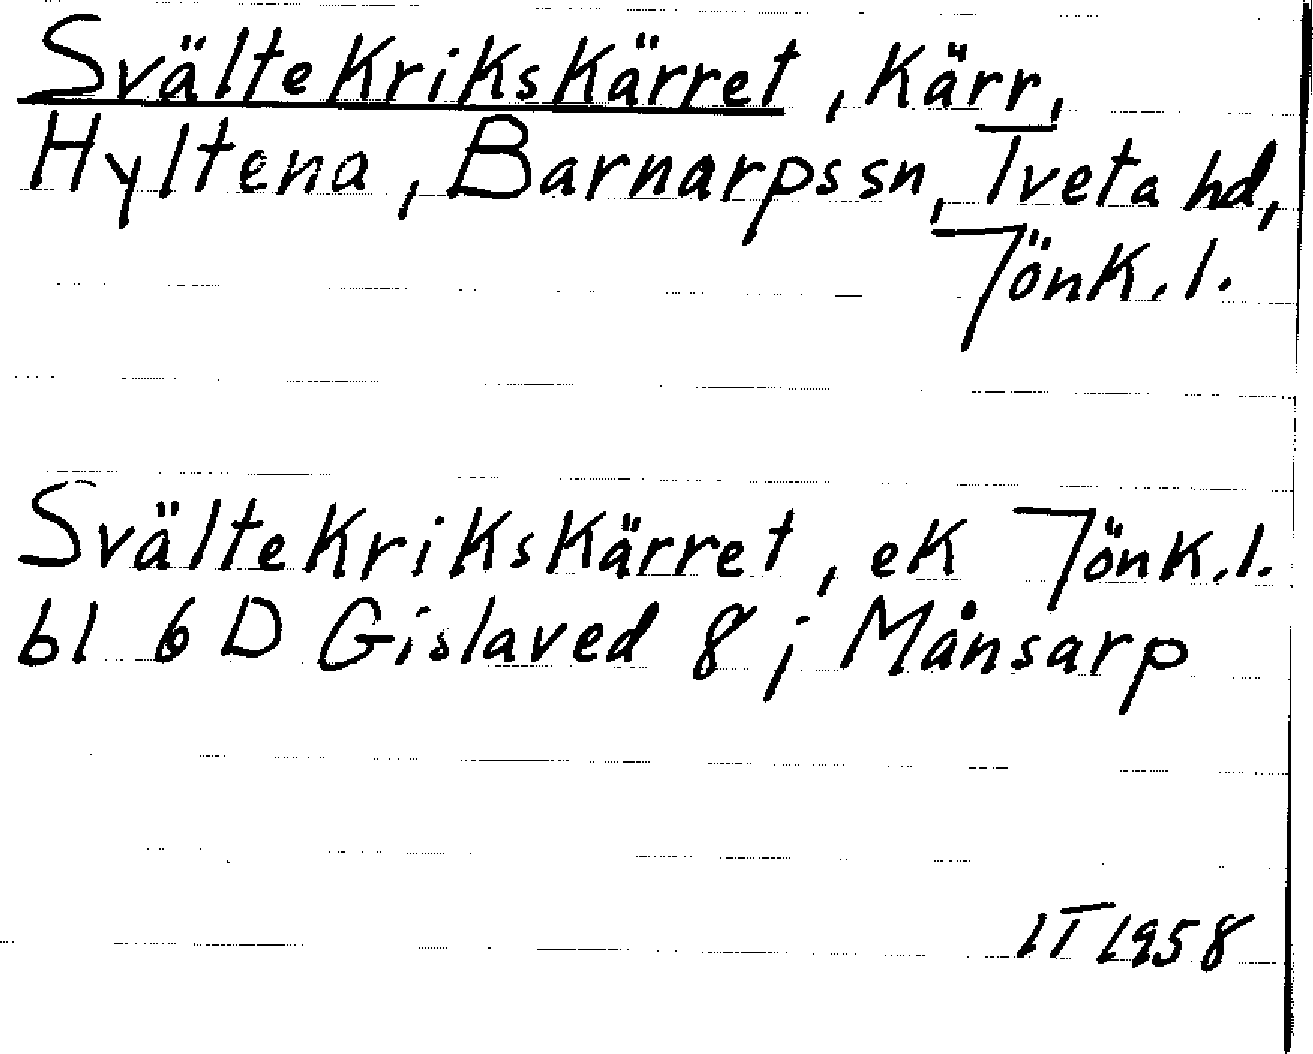 Svältekrikskärret, kärr,
Hyltena, Barnarps sn, Tveta hd,
Jönk.l.
Svältekrikskärret, ek Jönk.l.
bl 6 D Gislaved 8 ; Månsarp
IT 1958